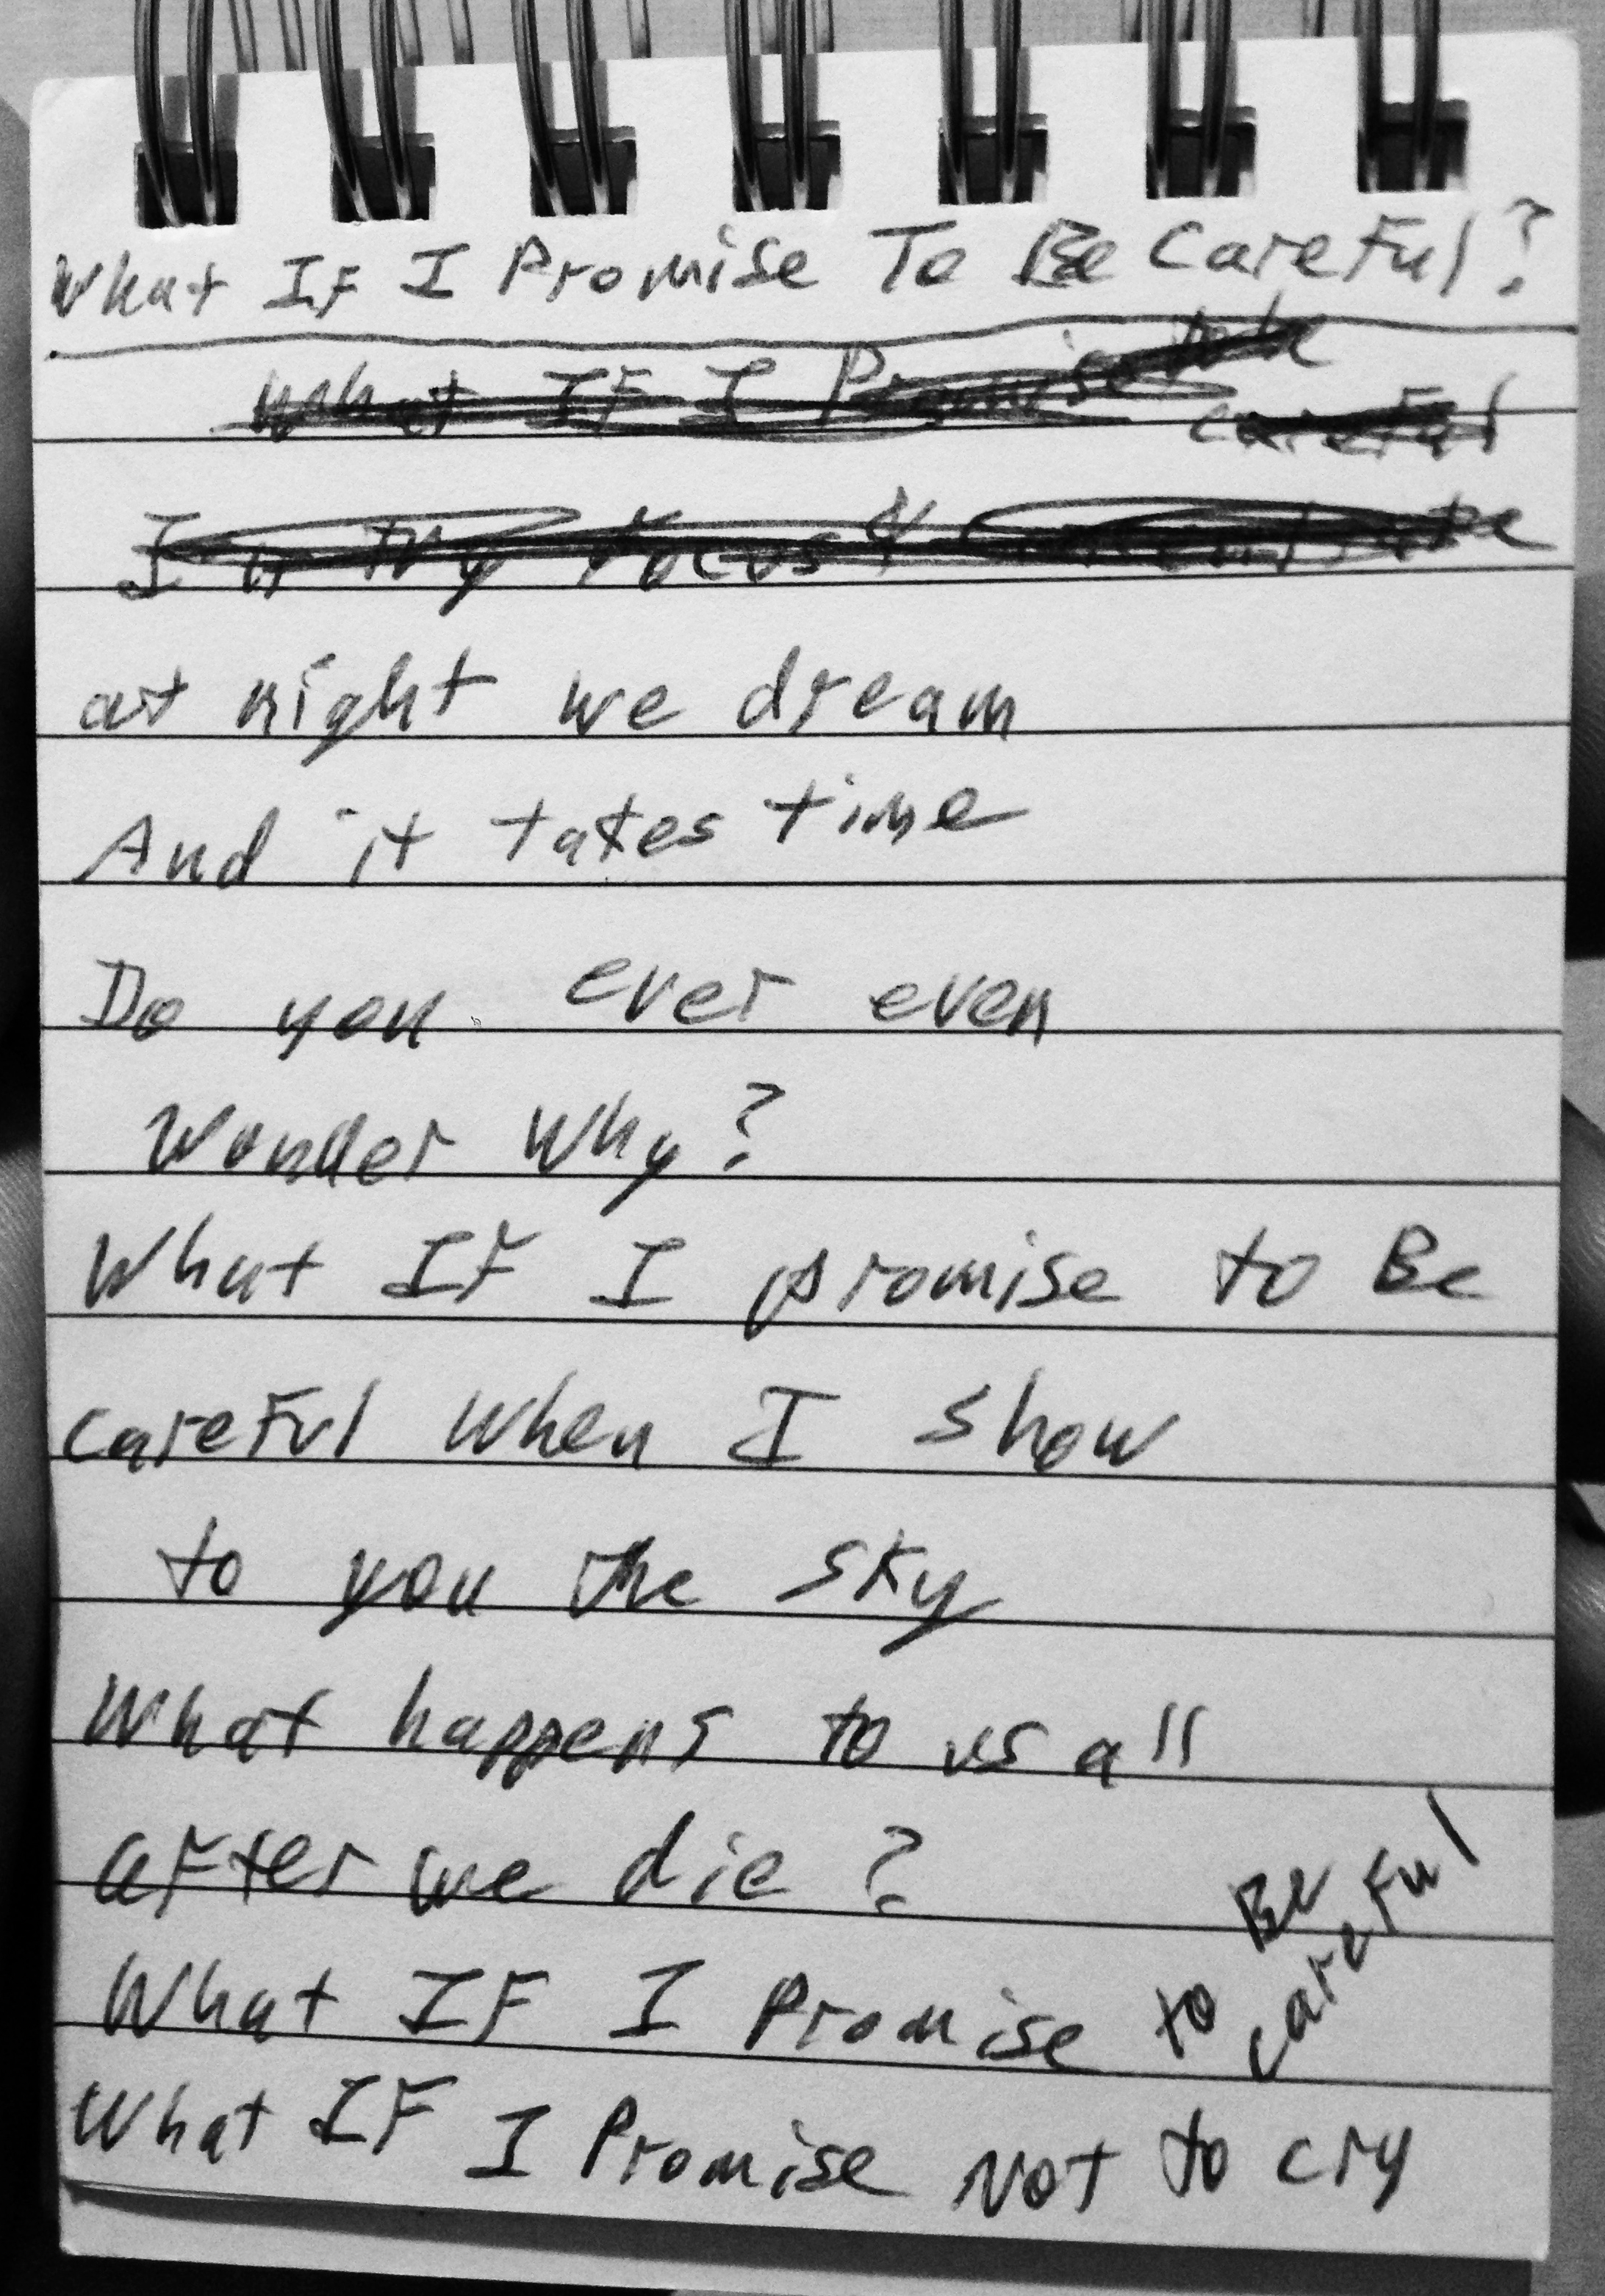 What IF I Promise To Be CareFul?
What IF I Promise to be
careFul
I try Focus &
at night we dream
And it takes time
Do you ever even
Wonder Why?
What IF I promise to Be
careFul when I show
to you the sky
What happens to us all
aFter we die?
What IF I Promise to Be careFul
What IF I Promise Not to cry